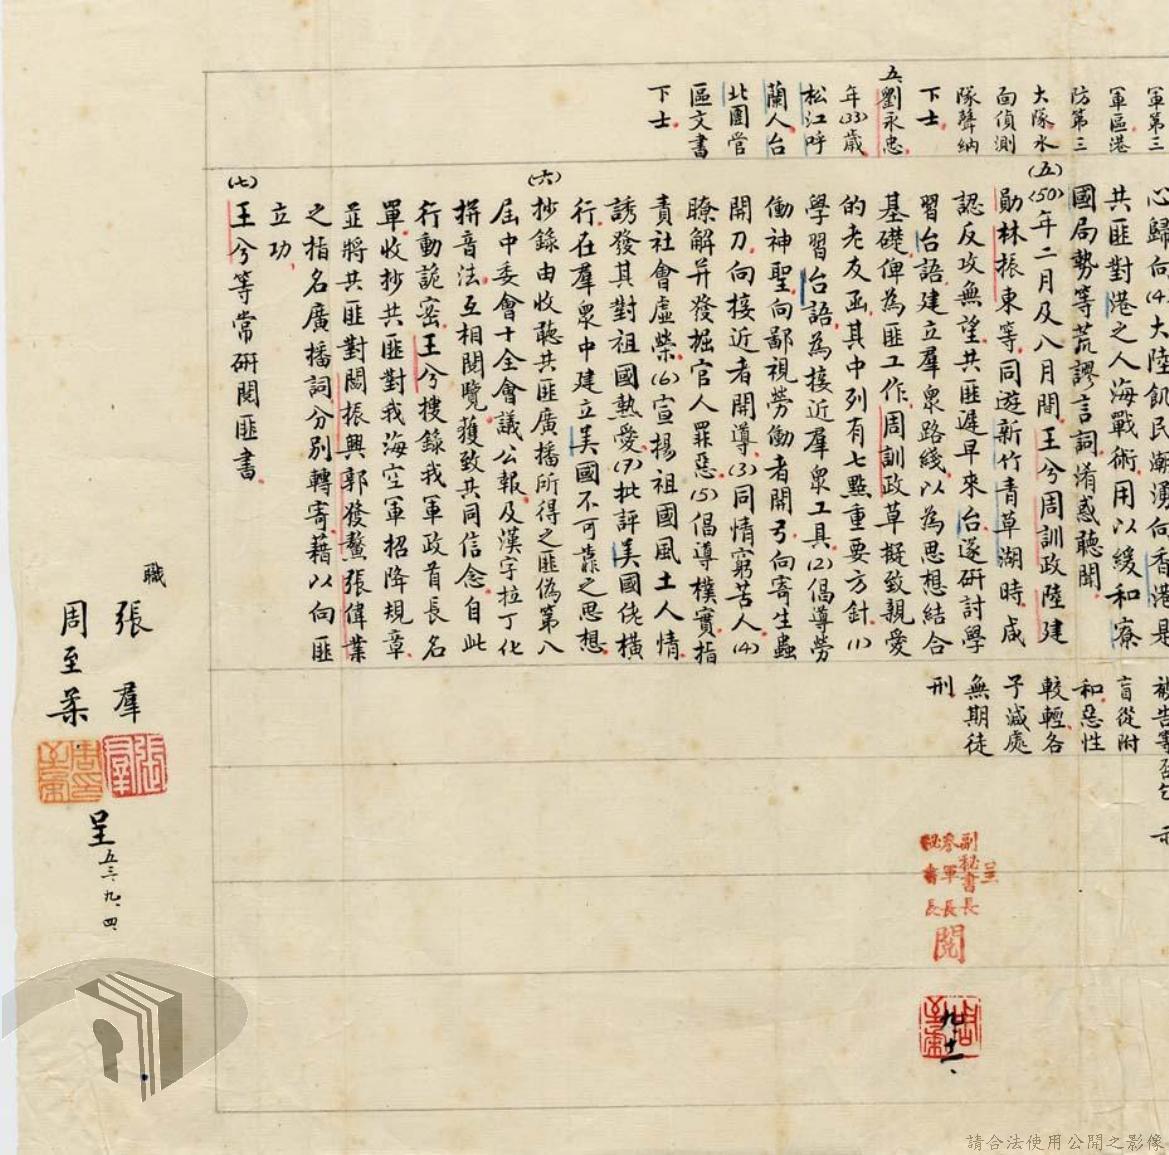 軍第三
軍區港
防第三
大隊水
面偵測
隊聲納
下士
五、劉永忠
年(33)歲
松江呼
蘭人台
北團管
區文書
下士
心歸向(4)大陸飢民潮湧向香港是
共匪對港之人海戰術用以緩和寮
國局勢等荒謬言詞淆惑聽聞
(五)(50)年二月及八月間王兮周訓政陸建
勛林振東等同遊新竹青草湖時咸
認反攻無望共匪遲早來台遂研討學
習台語建立羣眾路綫以為思想結合
基礎俾為匪工作周訓政草擬致親愛
的老友函其中列有七點重要方針(1)
學習台語為接近羣眾工具(2)倡導勞
働神聖向鄙視勞働者開弓向寄生蟲
開刀向接近者開導(3)同情窮苦人(4)
瞭解并發掘官人罪惡(5)倡導樸實指
責社會虛榮(6)宣揚祖國風土人情
誘發其對祖國熱愛(7)批評美國佬橫
行在羣眾中建立美國不可靠之思想
(六)抄錄由收聽共匪廣播所得之匪偽第八
屆中委會十全會議公報及漢字拉丁化
拼音法互相閱覽獲致共同信念自此
行動詭密王兮搜錄我軍政首長名
單收抄共匪對我海空軍招降規章
並將共匪對閻振興郭發鰲張偉業
之指名廣播詞分別轉寄藉以向匪
立功
(七)王兮等常研閱匪書
被告等
盲從附
和惡性
較輕各
予減處
無期徒
刑
呈
副秘書長
參軍長
秘書長
閱
周至柔
九、十一、
職
張羣
周至柔
張羣
周至柔
呈
五三、九、四、
請合法使用公開之影像